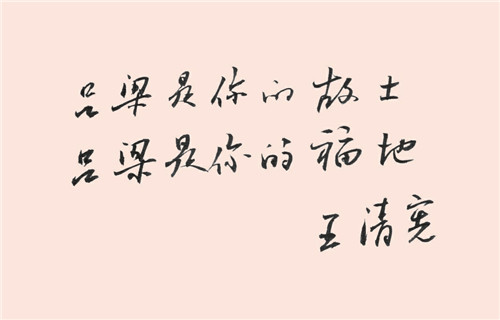 吕梁是你的故土
吕梁是你的福地
王清宪